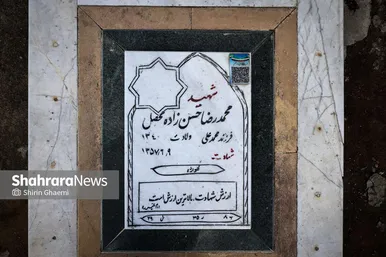 شهید
محمدرضا حسن زاده مفصل
فرزند محمدعلی ولادت ۱۳۴۰
شهادت ۱۳۵۷/۶/۹
ارزش شهادت، بالاترین ارزشی است
ShahraraNews
Shirin Ghaemi